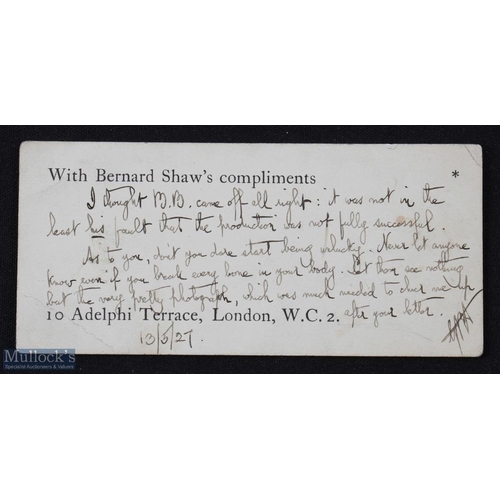 With Bernard Shaw's compliments *
I thought B.B. came off all right: it was not in the
least his fault that the production was not fully successful.
As to you, don't you dare start being unlucky. Never let anyone
know even if you break every bone in your body. Let them see nothing
but the very pretty photograph, which was much needed to cheer me up
10 Adelphi Terrace, London, W.C. 2. after your letter.
13/5/27.
Mullock's
Specialist Auctioneers & Valuers